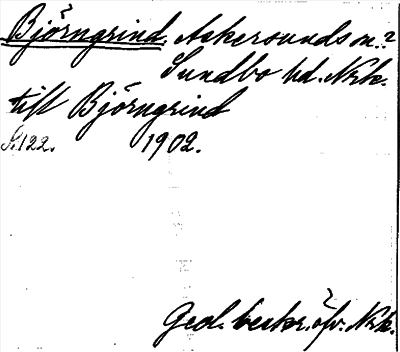 Björngrind, Askersunds sn.?
Sundbo hd. Nrk.
till Björngrind
S. 122. 1902.
Geol. beskr. öfv. Nrk.